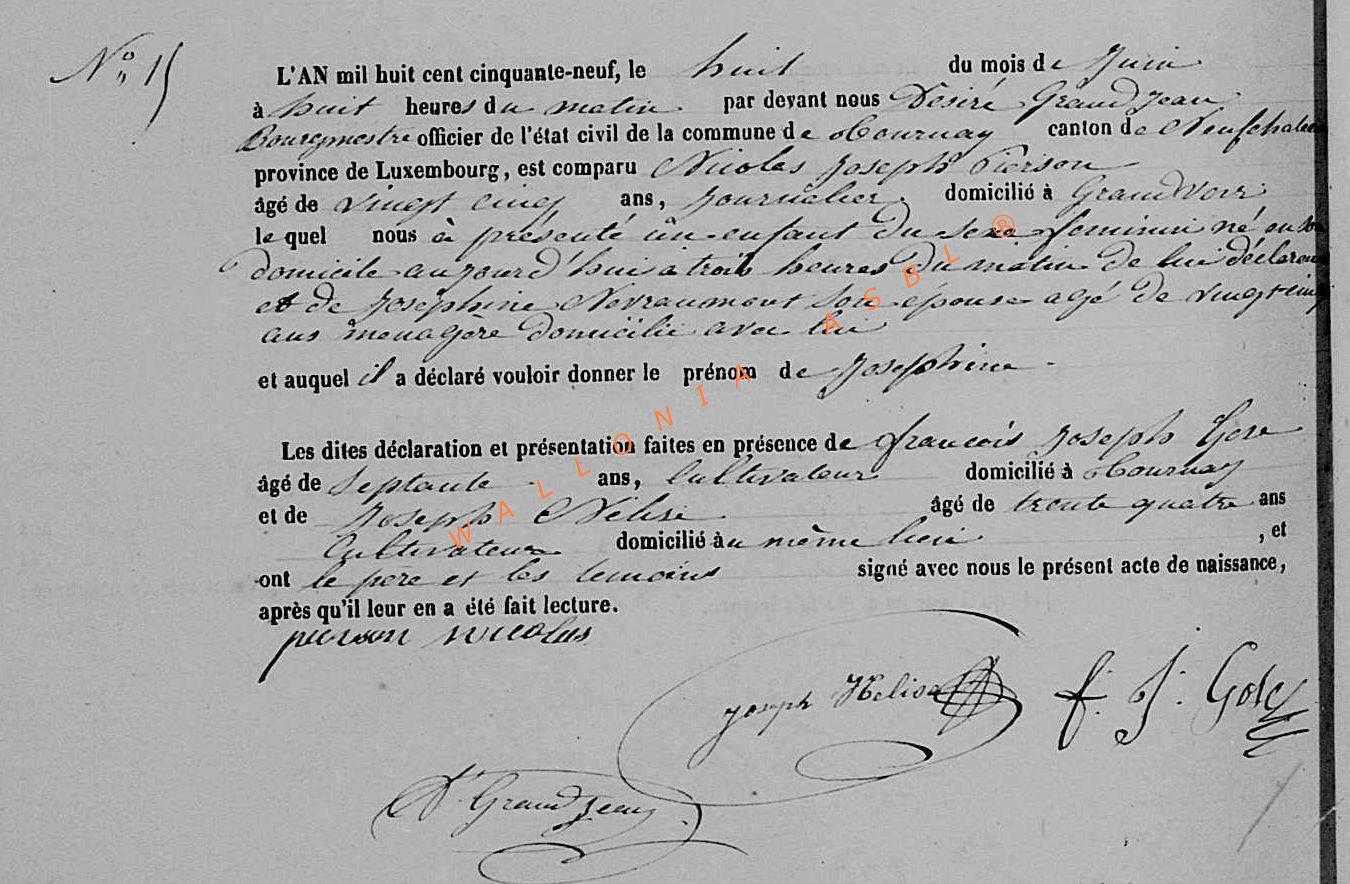 N° 15
L'AN mil huit cent cinquante-neuf, le huit du mois de Juin
à huit heures du matin par devant nous Désiré Grandjean
Bourgmestre officier de l'état civil de la commune de Tournay canton de Neufchateau
province de Luxembourg, est comparu Nicolas Joseph Pierson
âgé de vingt cinq ans, journalier domicilié à Grandvoir
lequel nous à présenté un enfant du sexe feminin né en son
domicile aujourd'hui a trois heures du matin de lui déclarant
et de Joséphine Nevraumont son épouse agé de vingt cinq
ans ménagère domicilié avec lui
et auquel il a déclaré vouloir donner le prénom de Josephine
Les dites déclaration et présentation faites en présence de françois Joseph
âgé de Septante ans, Cultivateur domicilié à Tournay
et de Joseph âgé de trente quatre ans
Cultivateur domicilié au même lieu, et
ont le père et les temoins signé avec nous le présent acte de naissance,
après qu'il leur en a été fait lecture.
pierson nicolas
Joseph
f. J.
D. Grandjean
WALLONIA ASBL ®